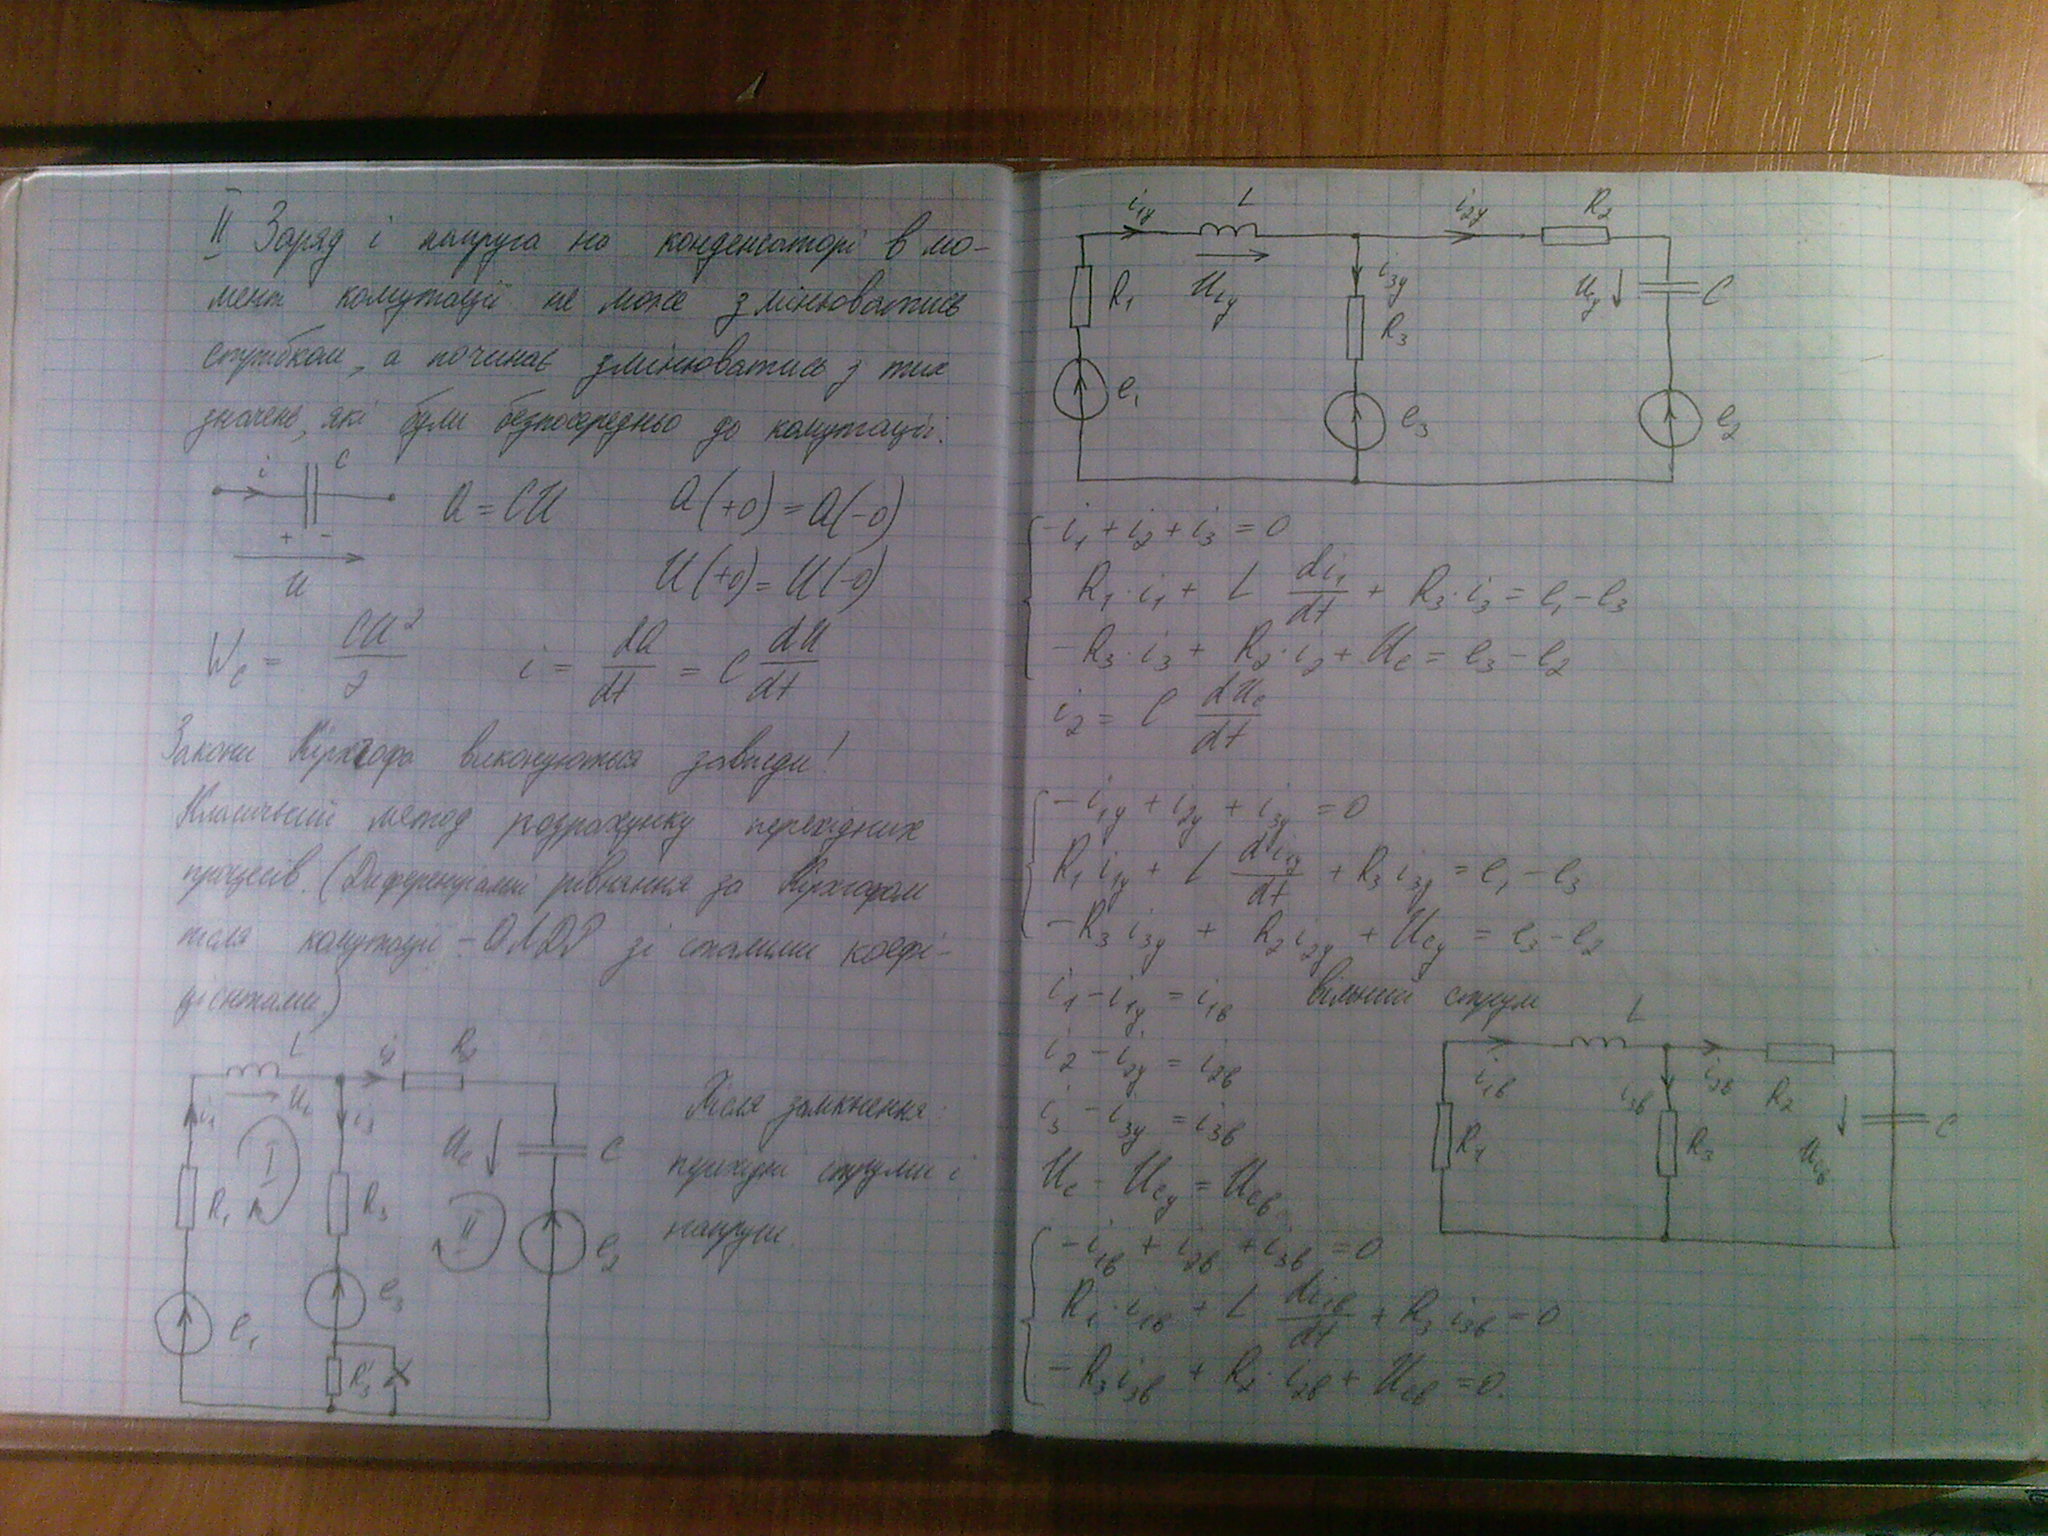 II Заряд і напруга на конденсаторі в мо-
мент комутації не може змінюватись
стрибком, а починає змінюватись з тих
значень, які були безпосередньо до комутації.
i C
+ -
U
Q = CU Q(+0) = Q(-0)
U(+0) = U(-0)
W_C = CU²/2 i = dQ/dt = C dU/dt
Закони Кірхгофа виконуються завжди!
Класичний метод розрахунку перехідних
процесів. (Диференціальні рівняння за Кірхгофом
після комутації - ОЛДР зі сталими коефі-
цієнтами)
L i₂ R₂
i₁ U_L i₃ U_C C
I II
R₁ R₃
e₁ e₃ e₂
R₃'
Після замикання:
перехідні струми і
напруги.
i₁у L i₂у R₂
R₁ U_Lу i₃у R₃ U_Cу C
e₁ e₃ e₂
-i₁ + i₂ + i₃ = 0
R₁·i₁ + L di₁/dt + R₃·i₃ = e₁ - e₃
-R₃·i₃ + R₂·i₂ + U_C = e₃ - e₂
i₂ = C dU_C/dt
-i₁у + i₂у + i₃у = 0
R₁i₁у + L di₁у/dt + R₃i₃у = e₁ - e₃
-R₃i₃у + R₂i₂у + U_Cу = e₃ - e₂
i₁ - i₁у = i₁в вільний струм
i₂ - i₂у = i₂в
i₃ - i₃у = i₃в
U_C - U_Cу = U_Cв
L
i₁в i₃в i₂в R₂
R₁ R₃ U_Cв C
-i₁в + i₂в + i₃в = 0
R₁·i₁в + L di₁в/dt + R₃i₃в = 0
-R₃i₃в + R₂·i₂в + U_Cв = 0.